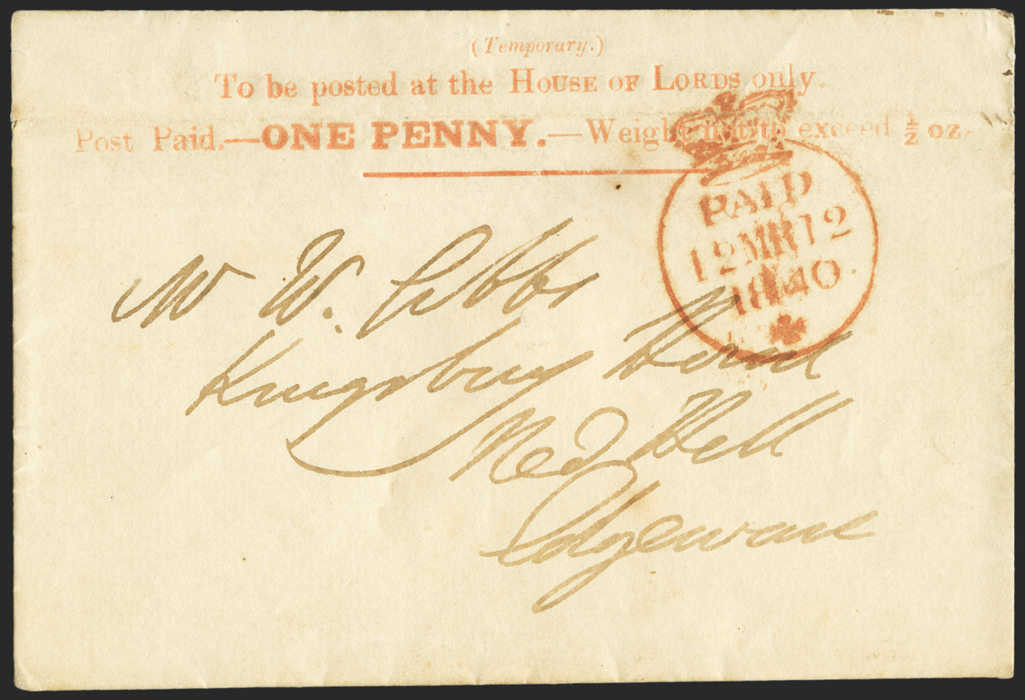 (Temporary.)
To be posted at the HOUSE OF LORDS only.
Post Paid.—ONE PENNY.—Weight not to exceed ½ oz.
PAID
12MR12
1840
Mr W. Gibbs
Kingsbury House
Red Hill
Edgeware